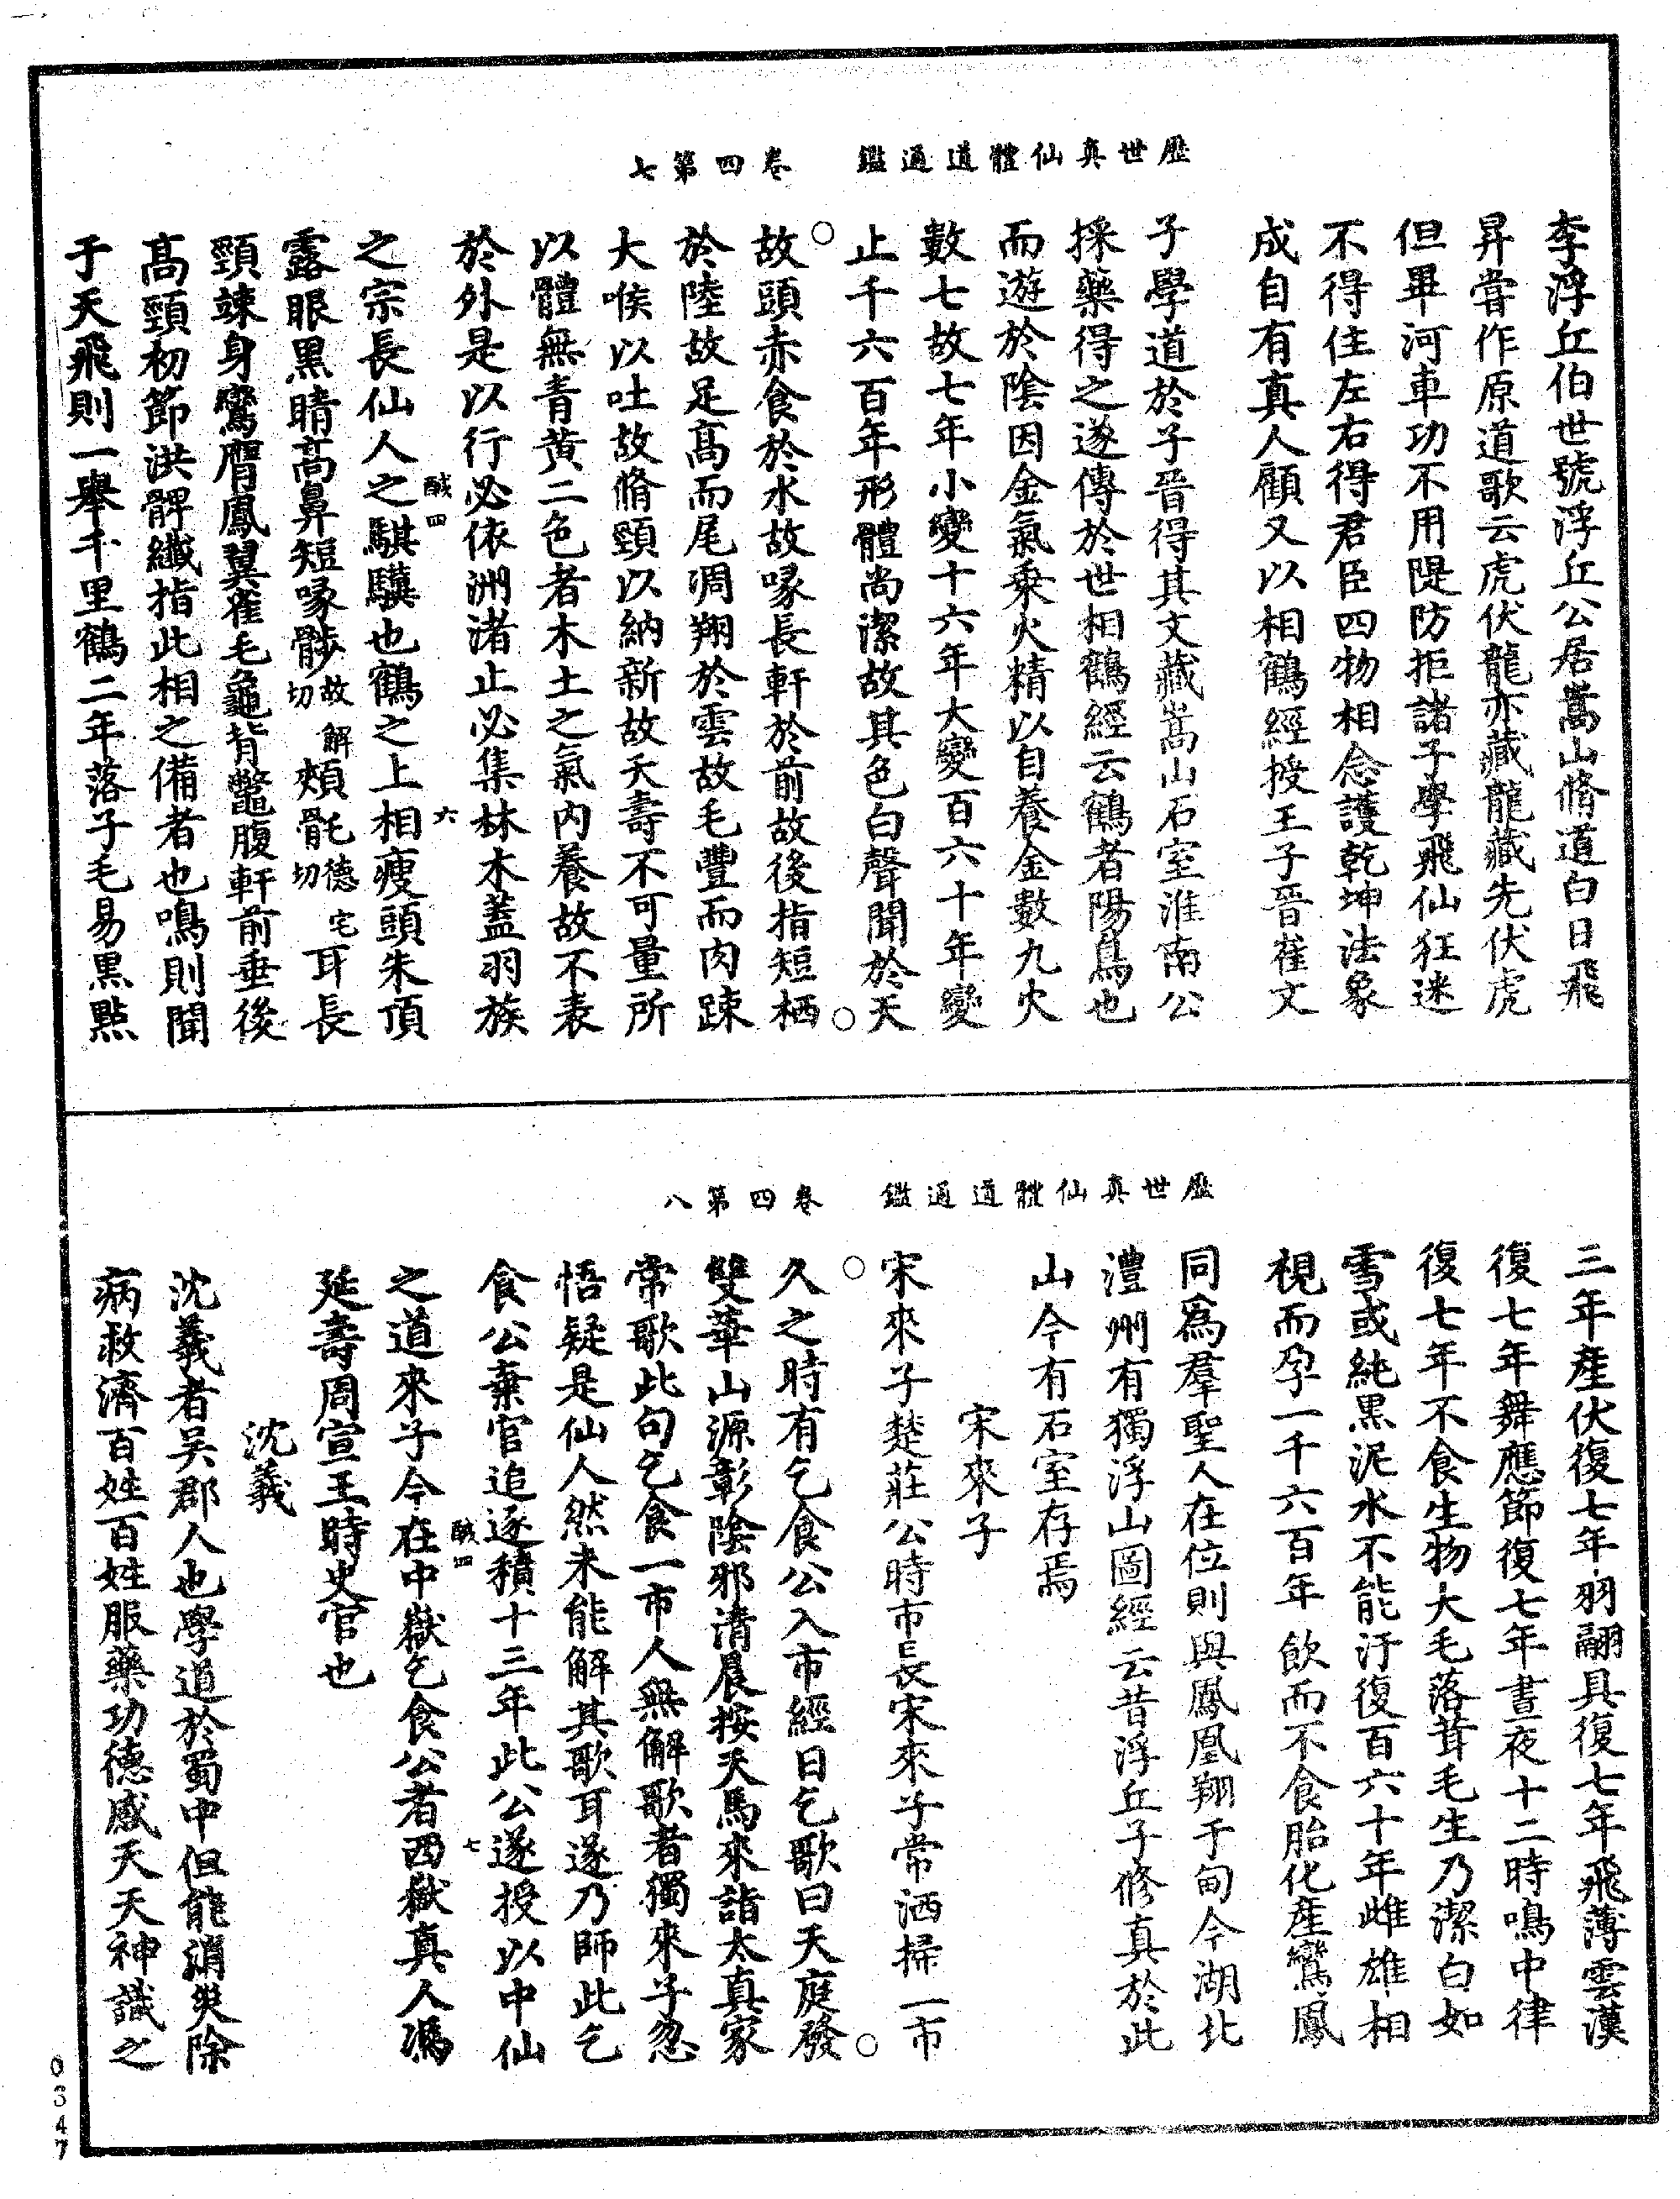 歷世真仙體道通鑑　卷四第七
李浮丘伯世號浮丘公居嵩山脩道白日飛
昇嘗作原道歌云虎伏龍亦藏龍藏先伏虎
但畢河車功不用隄防拒諸子學飛仙狂迷
不得住左右得君臣四物相念護乾坤法象
成自有真人顧又以相鶴經授王子晉崔文
子學道於子晉得其文藏嵩山石室淮南公
採藥得之遂傳於世相鶴經云鶴者陽鳥也
而遊於陰因金氣乗火精以自養金數九火
數七故七年小變十六年大變百六十年變
止千六百年形體尚潔故其色白聲聞於天
故頭赤食於水故喙長軒於前故後指短栖
於陸故足髙而尾凋翔於雲故毛豐而肉踈
大喉以吐故脩頸以納新故夭壽不可量所
以體無青黃二色者木土之氣内養故不表
於外是以行必依洲渚止必集林木蓋羽族
之宗長仙人之騏驥也鶴之上相瘦頭朱頂
醎四　六
露眼黒睛高鼻短喙骻故解切頰骭毛德宅切耳長
頸竦身鸞膺鳳翼雀毛龜背鼈腹軒前垂後
髙頸枌節洪髀纖指此相之備者也鳴則聞
于天飛則一舉千里鶴二年落子毛易黒點
歷世真仙體道通鑑　卷四第八
三年產伏復七年羽翮具復七年飛薄雲漢
復七年舞應節復七年晝夜十二時鳴中律
復七年不食生物大毛落茸毛生乃潔白如
雪或純黒泥水不能汙復百六十年雌雄相
視而孕一千六百年飲而不食胎化產鸞鳳
同爲羣聖人在位則與鳳凰翔于甸今湖北
澧州有獨浮山圖經云昔浮丘子修真於此
山今有石室存焉
宋來子
宋來子楚莊公時市長宋來子常洒掃一市
久之時有乞食公入市經日乞歌曰天庭發
雙華山源彰陰邪清晨按天馬來詣太真家
常歌此句乞食一市人無解歌者獨來子忽
悟疑是仙人然未能解其歌耳遂乃師此乞
食公棄官追逐積十三年此公遂授以中仙
醎四　七
之道來子今在中嶽乞食公者西嶽真人馮
延壽周宣王時史官也
沈羲
沈羲者吴郡人也學道於蜀中但能消災除
病救濟百姓百姓服藥功德感天天神識之
0347